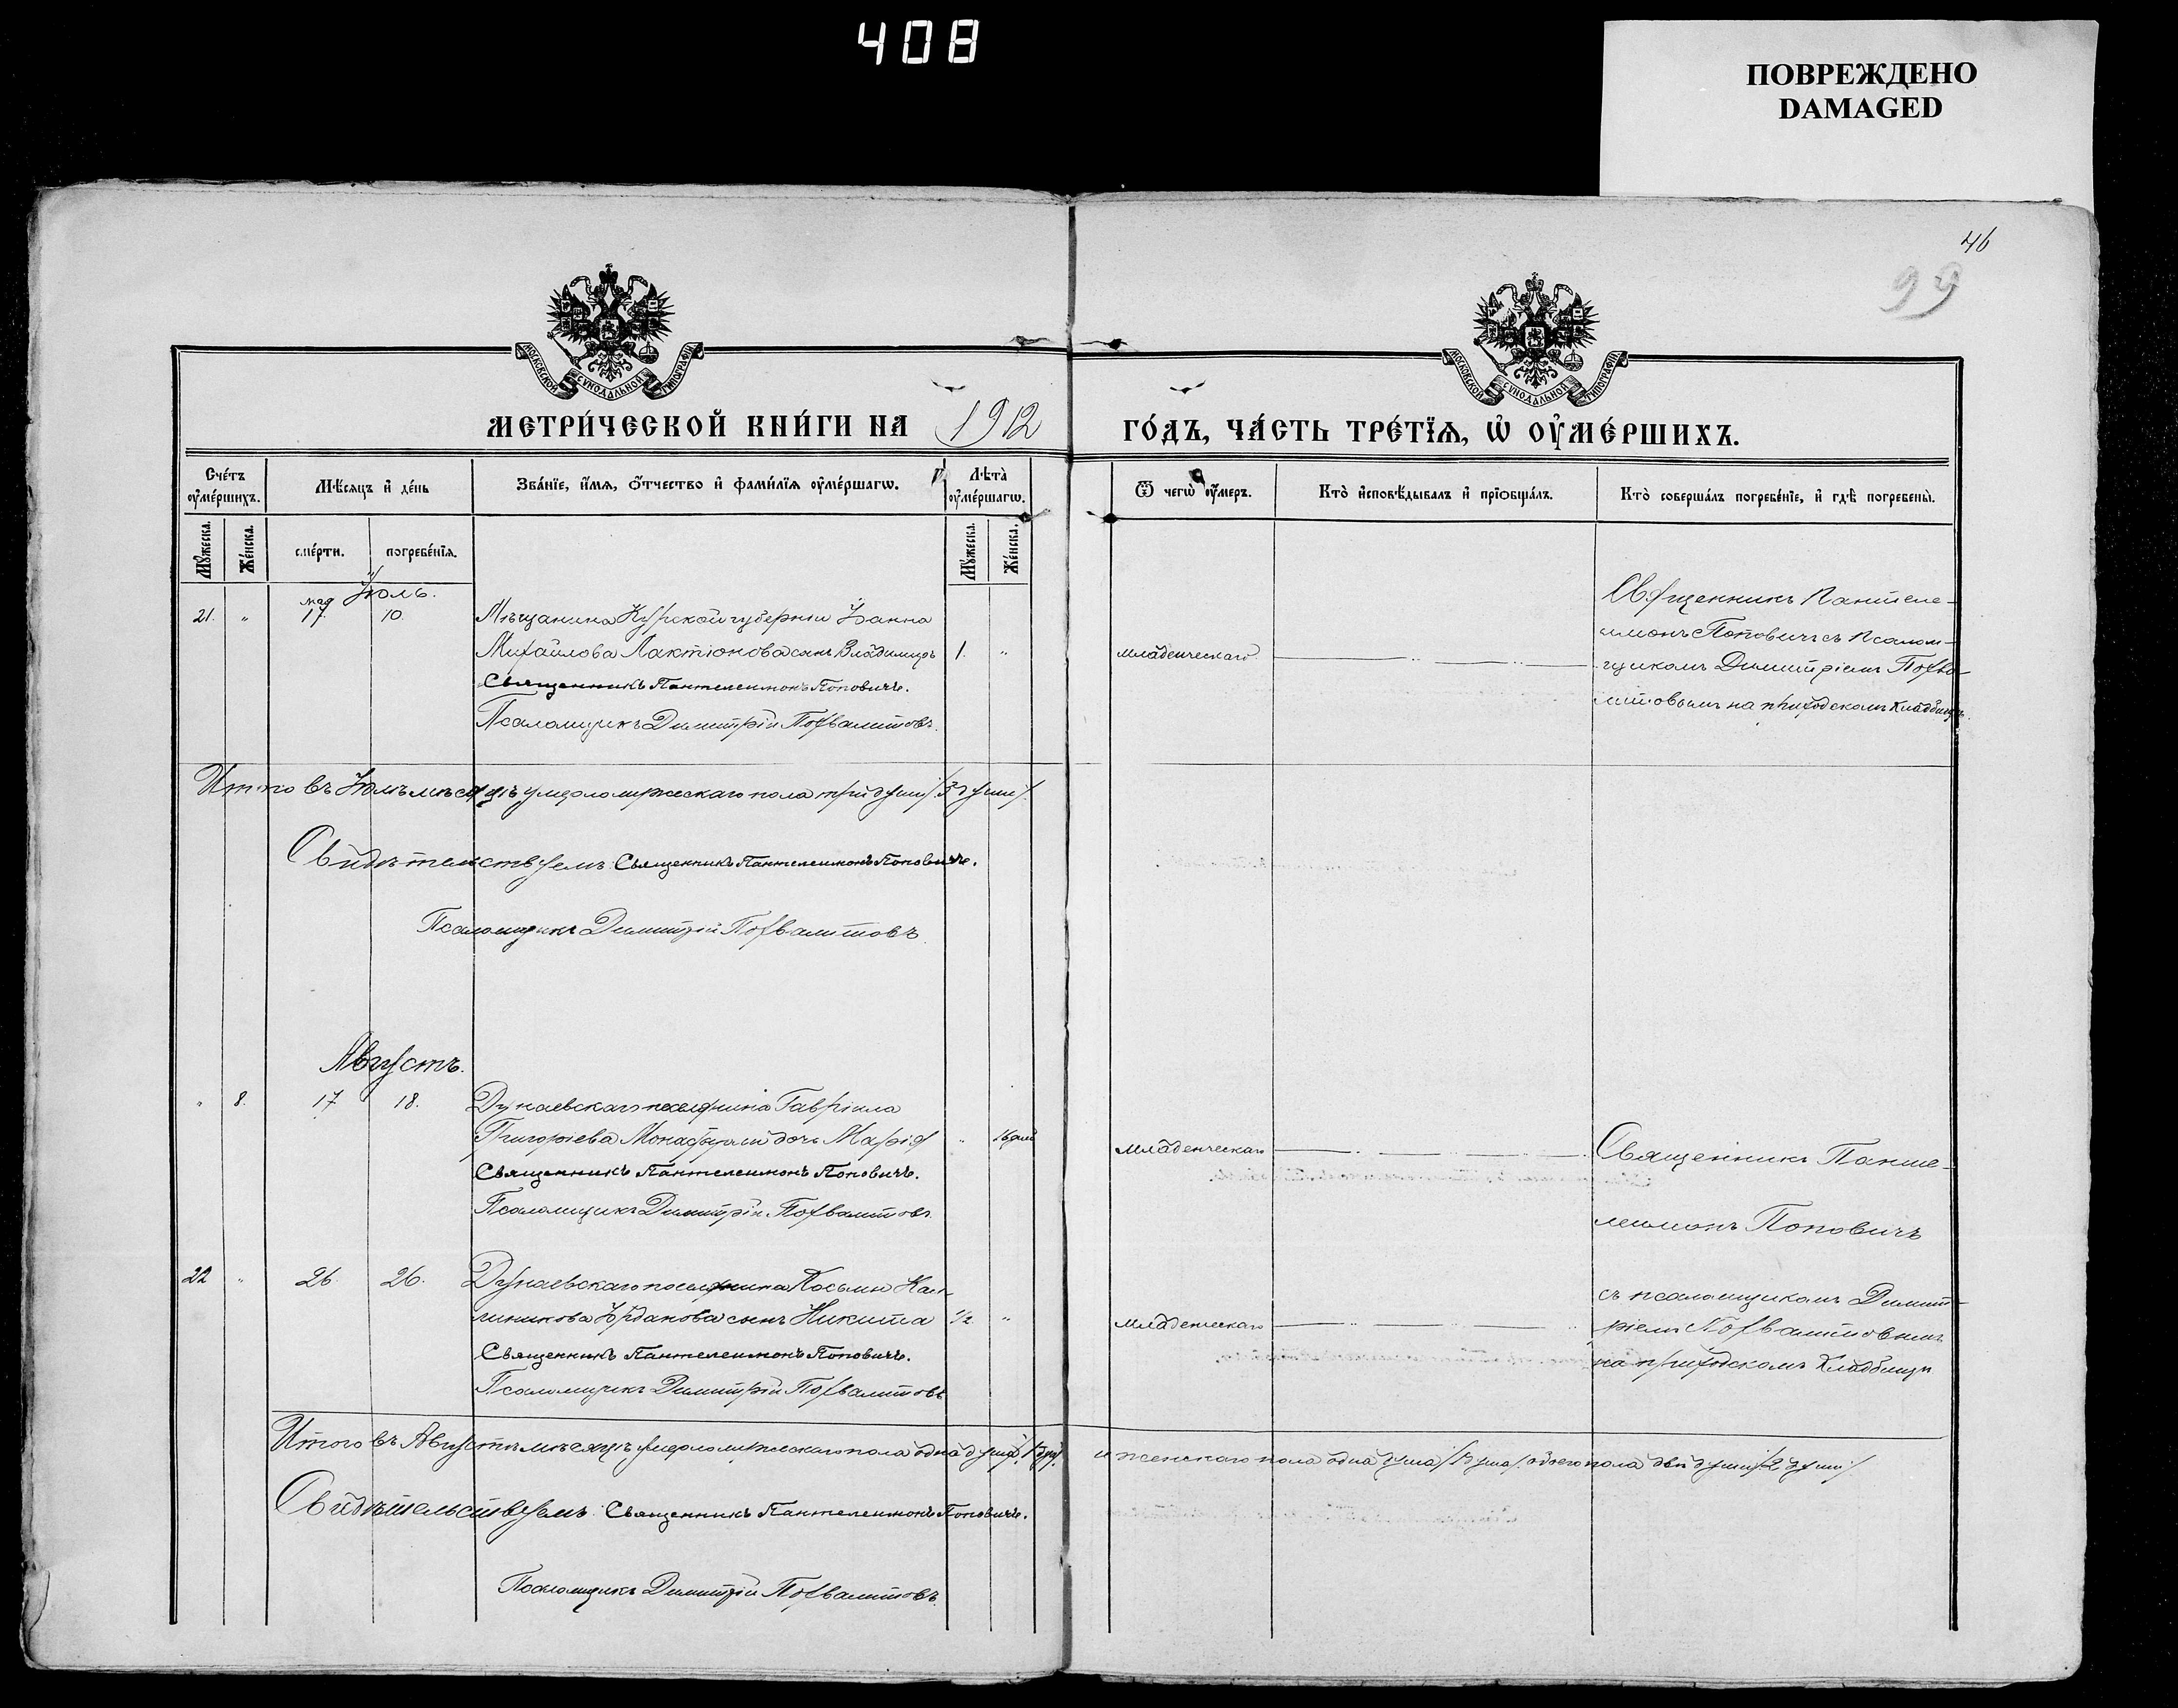 408
ПОВРЕЖДЕНО
DAMAGED
46
99
МОСКОВСКОЙ СѴНОДАЛЬНОЙ ТИПОГРАФІИ
МОСКОВСКОЙ СѴНОДАЛЬНОЙ ТИПОГРАФІИ
МЕТРИ́ЧЕСКОЙ КНИ́ГИ НА 1912 ГО́ДЪ, ЧА́СТЬ ТРЕ́ТЇѦ, Ѡ҆ ОУ҆МЕ́РШИХЪ.
Сче́тъ оу҆ме́ршихъ.
Мѣ́сѧцъ и҆ де́нь
Зва́нїе, и҆́мѧ, ѻ҆́тчество и҆ фами́лїѧ оу҆ме́ршагѡ.
Лѣ́та оу҆ме́ршагѡ.
Ѿ чегѡ̀ оу҆́меръ.
Кто̀ и҆сповѣ́дывалъ и҆ прїѡбща́лъ.
Кто̀ соверша́лъ погребе́нїе, и҆ гдѣ̀ погребены̀.
Мꙋ́жеска.
Же́нска.
сме́рти.
погребе́нїѧ.
Мꙋ́жеска.
Же́нска.
Іюль.
мая
21. " 17. 10. Мѣщанина Курской губерніи Іоанна
Михайлова Лактіонова сынъ Владимиръ 1. "
Священникъ Пантелеимонъ Поповичъ.
Псаломщикъ Димитрій Похвалитовъ.
младенческаго
Священникъ Пантеле-
имонъ Поповичъ съ Псалом-
щикомъ Димитріемъ Похва-
литовымъ на приходскомъ кладбищѣ.
Итого въ Іюлѣ мѣсяцѣ умерло мужескаго пола три души /3 души/.
Свидѣтельствуемъ: Священникъ Пантелеимонъ Поповичъ.
Псаломщикъ Димитрій Похвалитовъ.
Августъ.
" 8. 17 18. Дунаевскаго поселянина Гавріила
Григоріева дочь Марія " 16 дней
Священникъ Пантелеимонъ Поповичъ.
Псаломщикъ Димитрій Похвалитовъ.
младенческаго
Священникъ Панте-
леимонъ Поповичъ
22 " 26. 26. Дунаевскаго поселянина Косьмы Кал-
линикова Іорданова сынъ Никита 1/2 "
Священникъ Пантелеимонъ Поповичъ.
Псаломщикъ Димитрій Похвалитовъ
младенческаго
съ псаломщикомъ Димит-
ріемъ Похвалитовымъ
на приходскомъ кладбищѣ
Итого въ Августѣ мѣсяцѣ умерло мужескаго пола одна душа /1 душ/. и женскаго пола одна душа /1 душа/. обоего пола двѣ души /2 души/
Свидѣтельствуемъ: Священникъ Пантелеимонъ Поповичъ.
Псаломщикъ Димитрій Похвалитовъ.